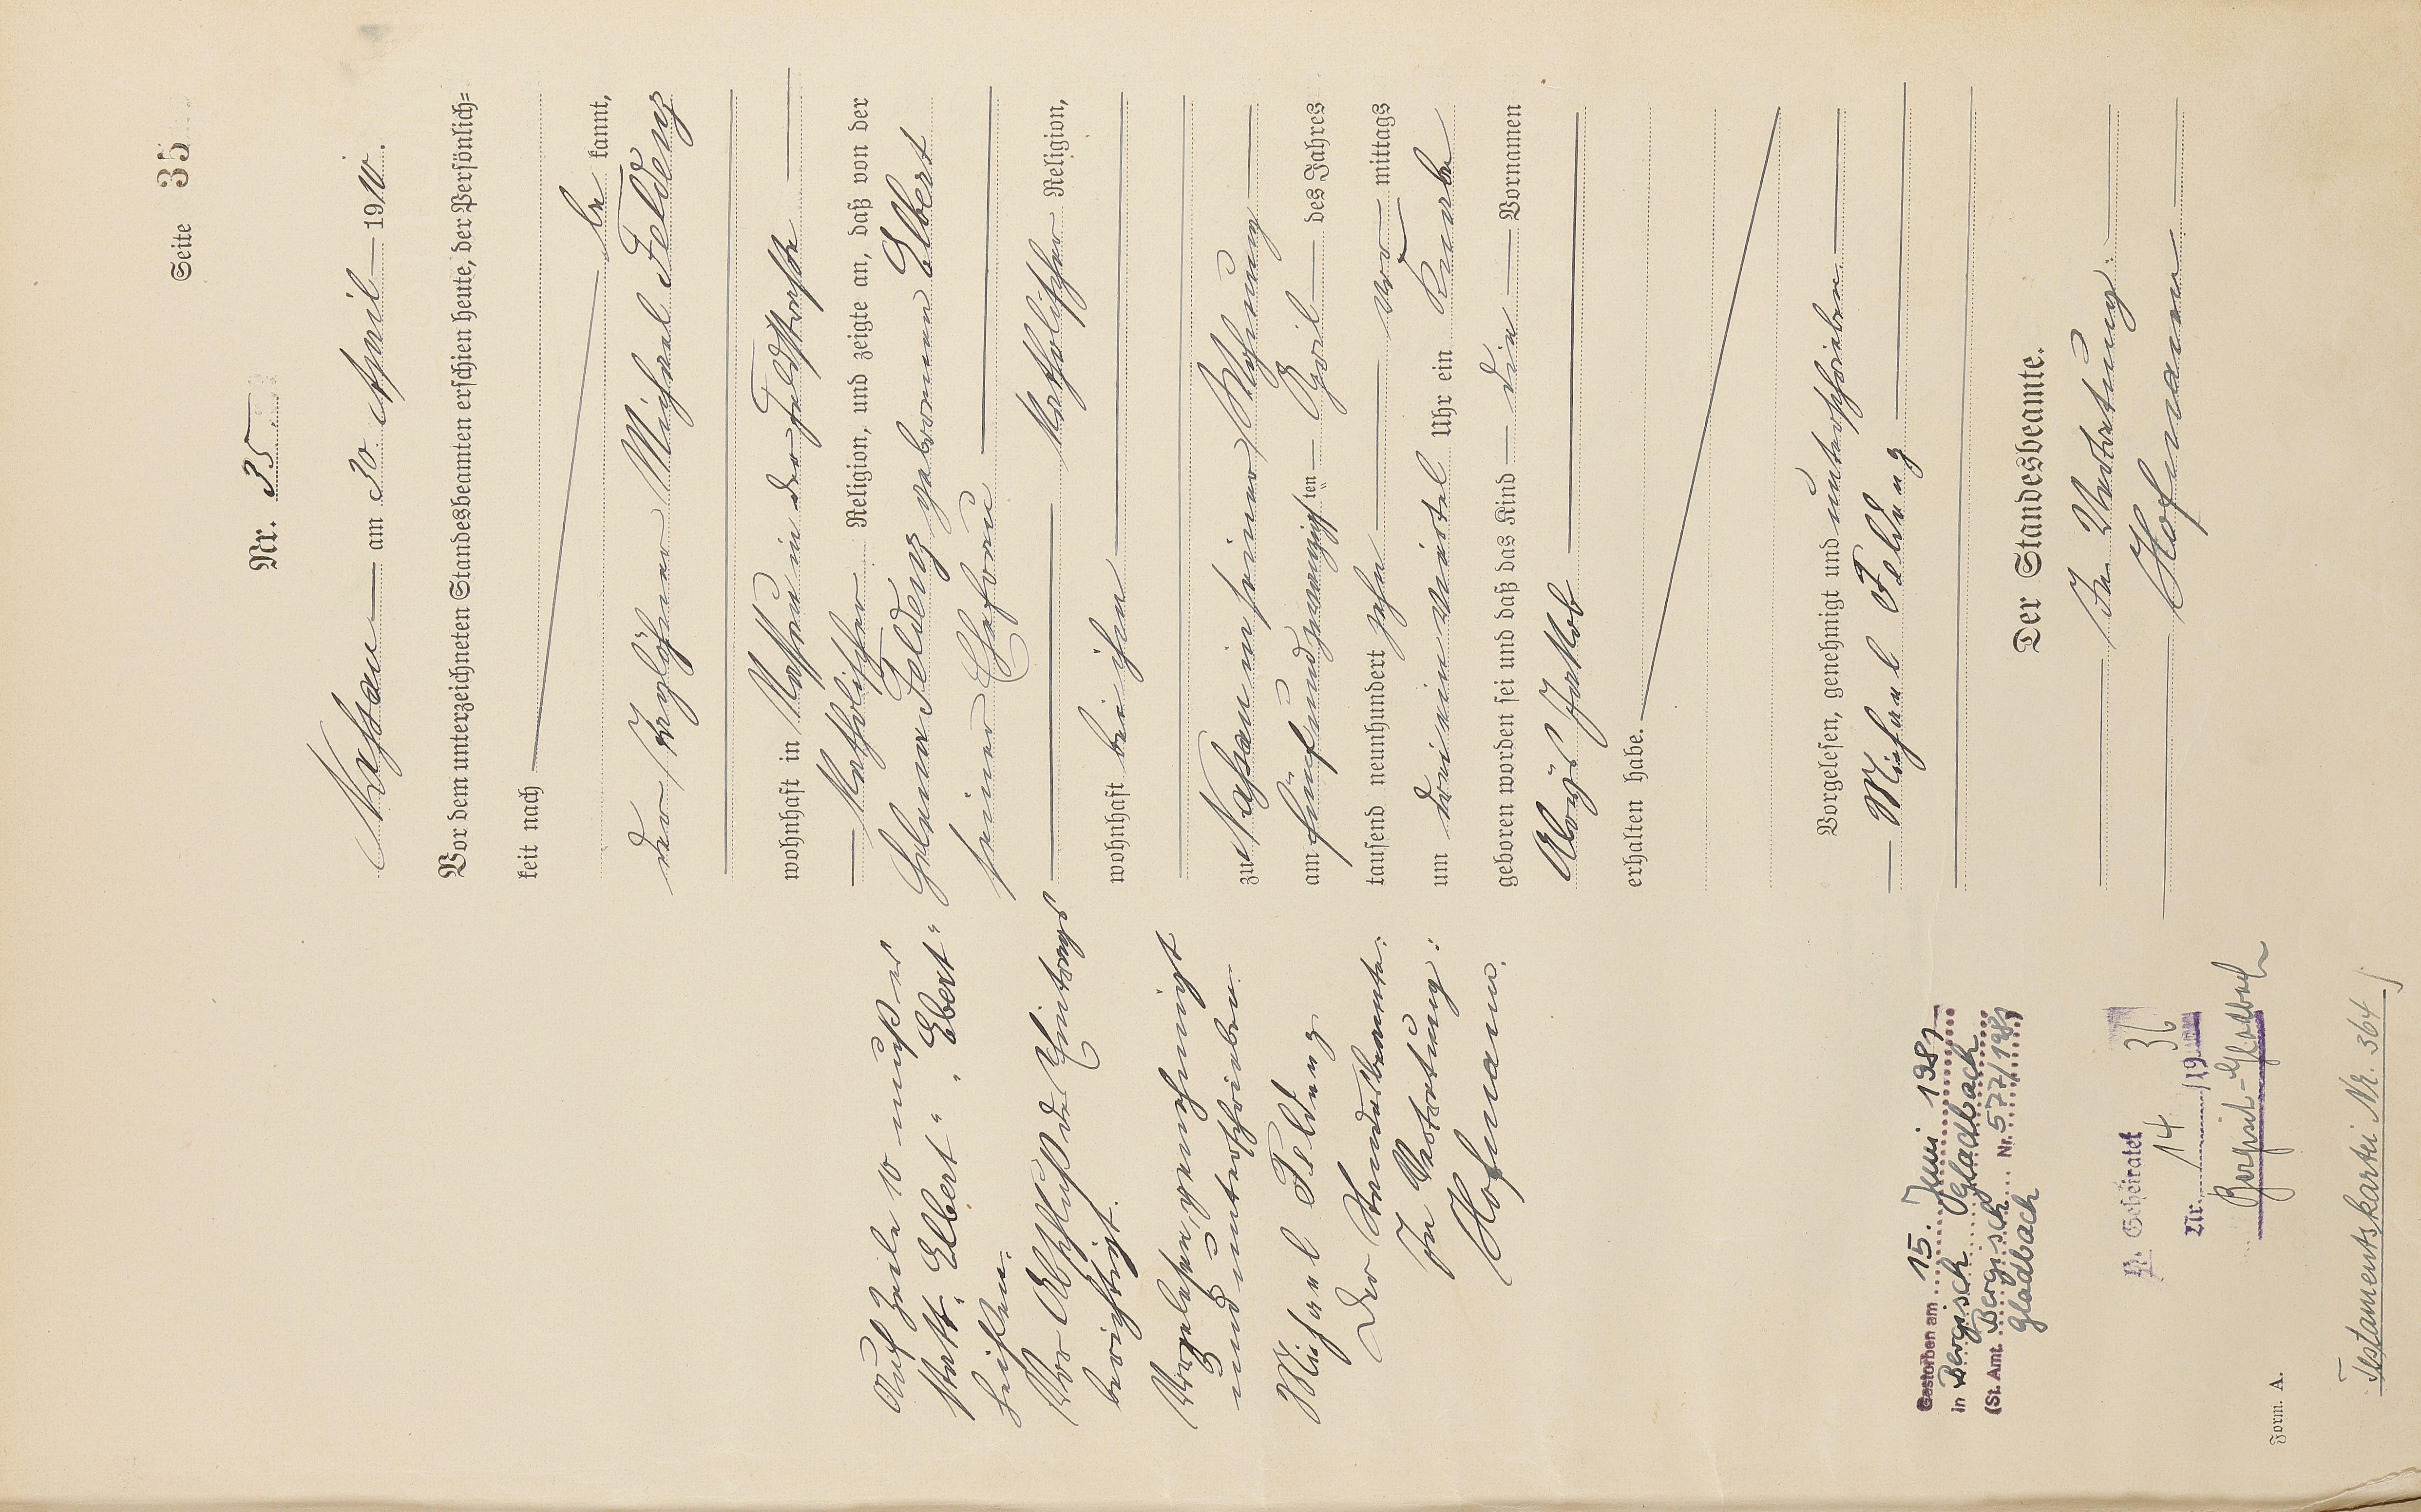 Seite 35
Nr. 35
Nassau — am 30 April — 1910.
Vor dem unterzeichneten Standesbeamten erschien heute, der Persönlich=
keit nach
be kannt,
der Taglöhner Michael Feldenz
wohnhaft in Nassau in der Feldstraße
katholischer Religion, und zeigte an, daß von der
Helena Feldenz geborenen Elbert
seiner Ehefrau
katholischer Religion,
wohnhaft bei ihm
zu Nassau in seiner Wohnung
am fünfundzwanzigsten April des Jahres
tausend neunhundert zehn vor mittags
um dreieinviertel Uhr ein Knabe
geboren worden sei und daß das Kind — die — Vornamen
Aloys Jakob
erhalten habe.
Vorgelesen, genehmigt und unterschrieben
Michael Feldenz
Der Standesbeamte.
In Vertretung:
Hofmann
Auf Zeile 10 muß es
statt „Elbert“ „Ebert“
heißen.
Vor Abschluß des Eintrags
berichtigt.
Vorgelesen, genehmigt
und unterschrieben.
Michael Feldenz
Der Standesbeamte.
In Vertretung:
Hofmann.
Gestorben am 15. Juni 1987
in Bergisch Gladbach
(St. Amt Bergisch Nr. 577/1987)
Gladbach
Geheiratet
Nr. 14 /19 36
Bergisch-Gladbach
Form. A.
Testamentskartei Nr. 364